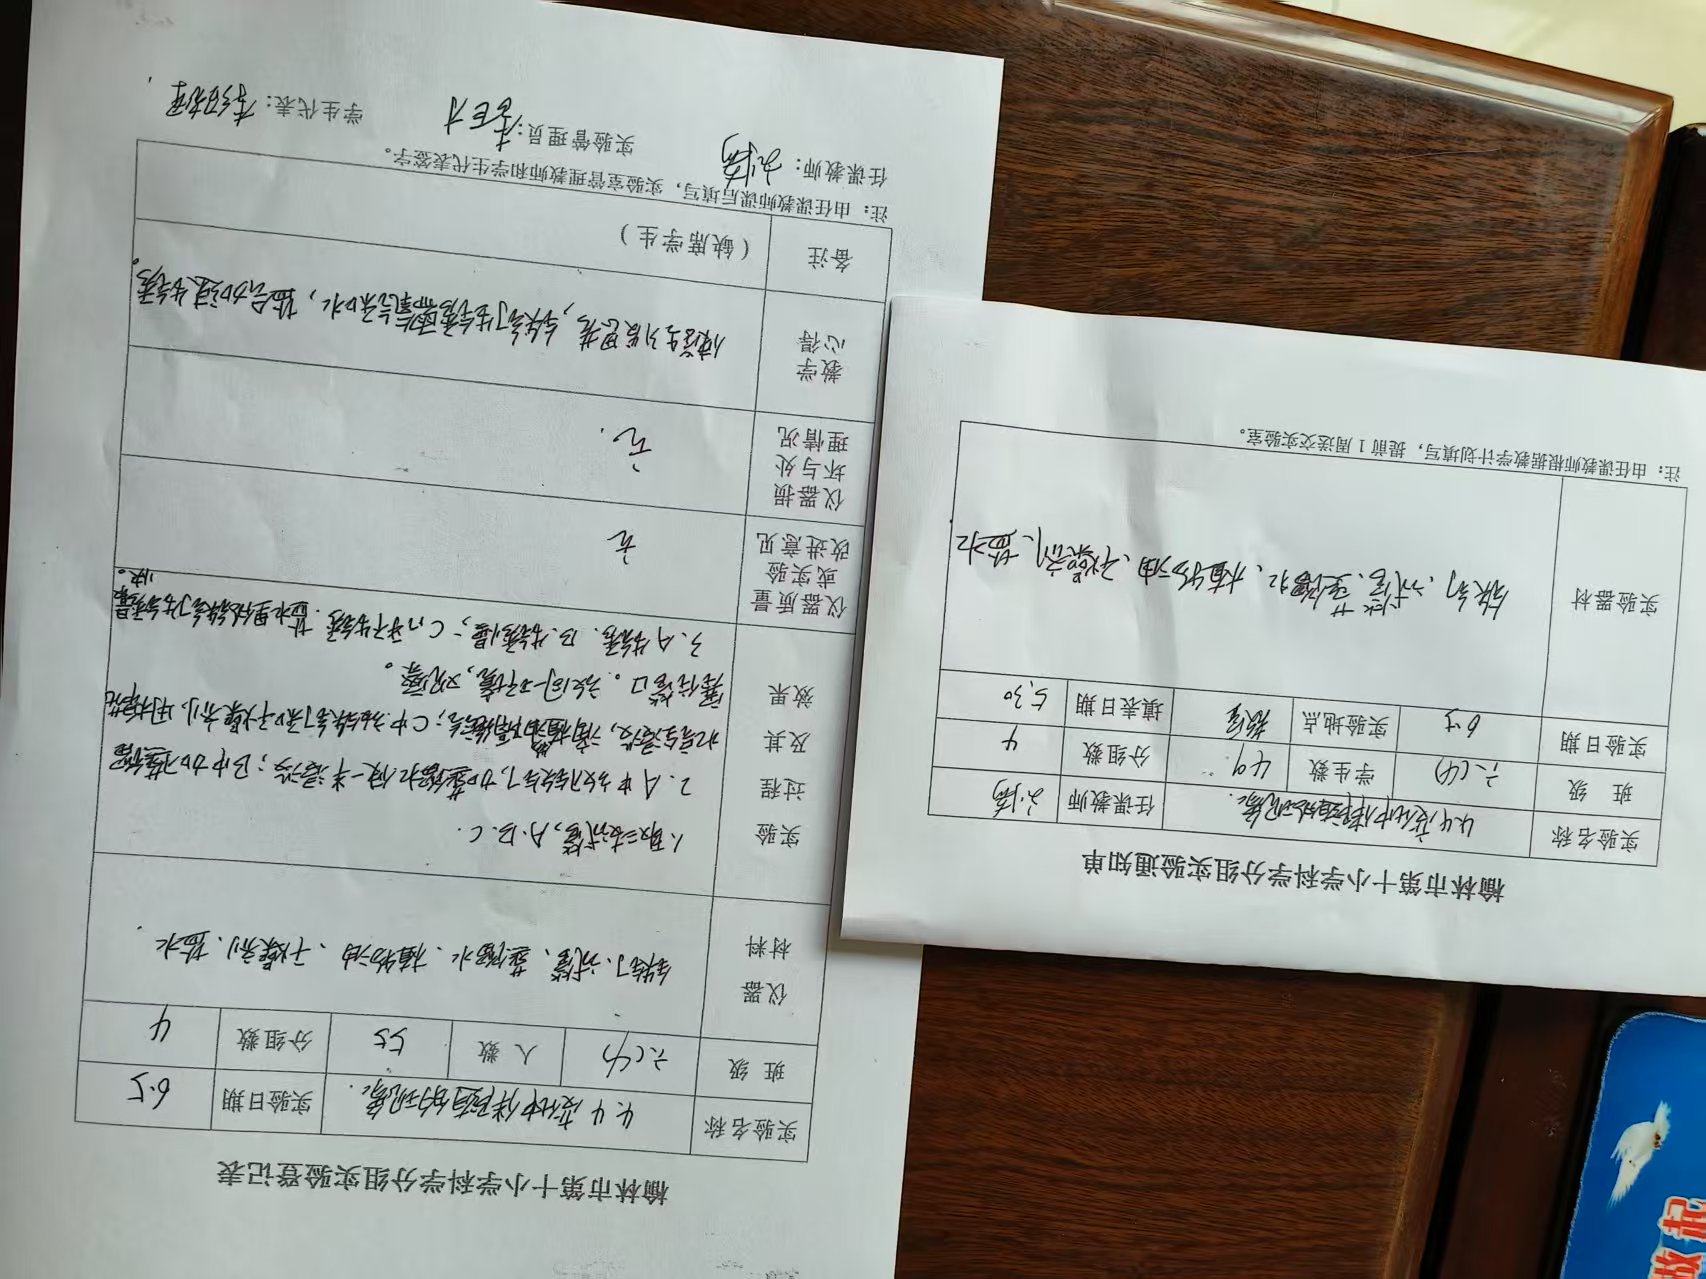 榆林市第十小学科学分组实验登记表
实验名称 4.4 变化中伴随的现象 实验日期 6.5
班 级 六(4) 人 数 55 分组数 4
仪器材料 铁钉、试管、蒸馏水、植物油、干燥剂、盐水
实验过程及其效果
1.取三支试管,A.B.C.
2.A中放铁钉,加蒸馏水使一半浸没;B中加
滴植物油隔绝;C中放铁钉和干燥剂,用棉花
塞住管口。放同一环境,观察。
3.A生锈。B.生锈慢;C几乎不生锈.盐水里的铁钉生锈最
快。
仪器质量或实验改进意见 无
仪器损坏与处理情况 无.
教学心得
使学生认识,铁钉生锈需氧气和水,盐会加速生锈。
备注 (缺席学生)
注:由任课教师课后填写,实验室管理教师和学生代表签字。
任课教师: 实验管理员: 学生代表:
榆林市第十小学科学分组实验通知单
实验名称 4.4变化中伴随的现象. 任课教师
班 级 六(4) 学生数 49 分组数 4
实验日期 6.5 实验地点 填表日期 5.30
实验器材 铁钉、试管、蒸馏水、植物油、干燥剂、盐水
注:由任课教师根据教学计划填写,提前1周送交实验室。
放起